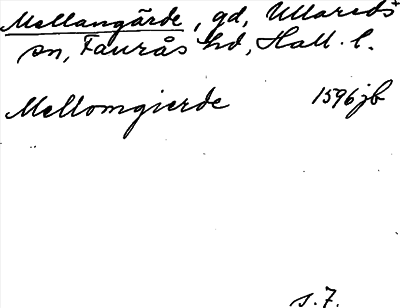 Mellangärde, gd, Ullareds
sn, Faurås hd, Hall. l.
Mellomgierde 1596 jb
s. 7.